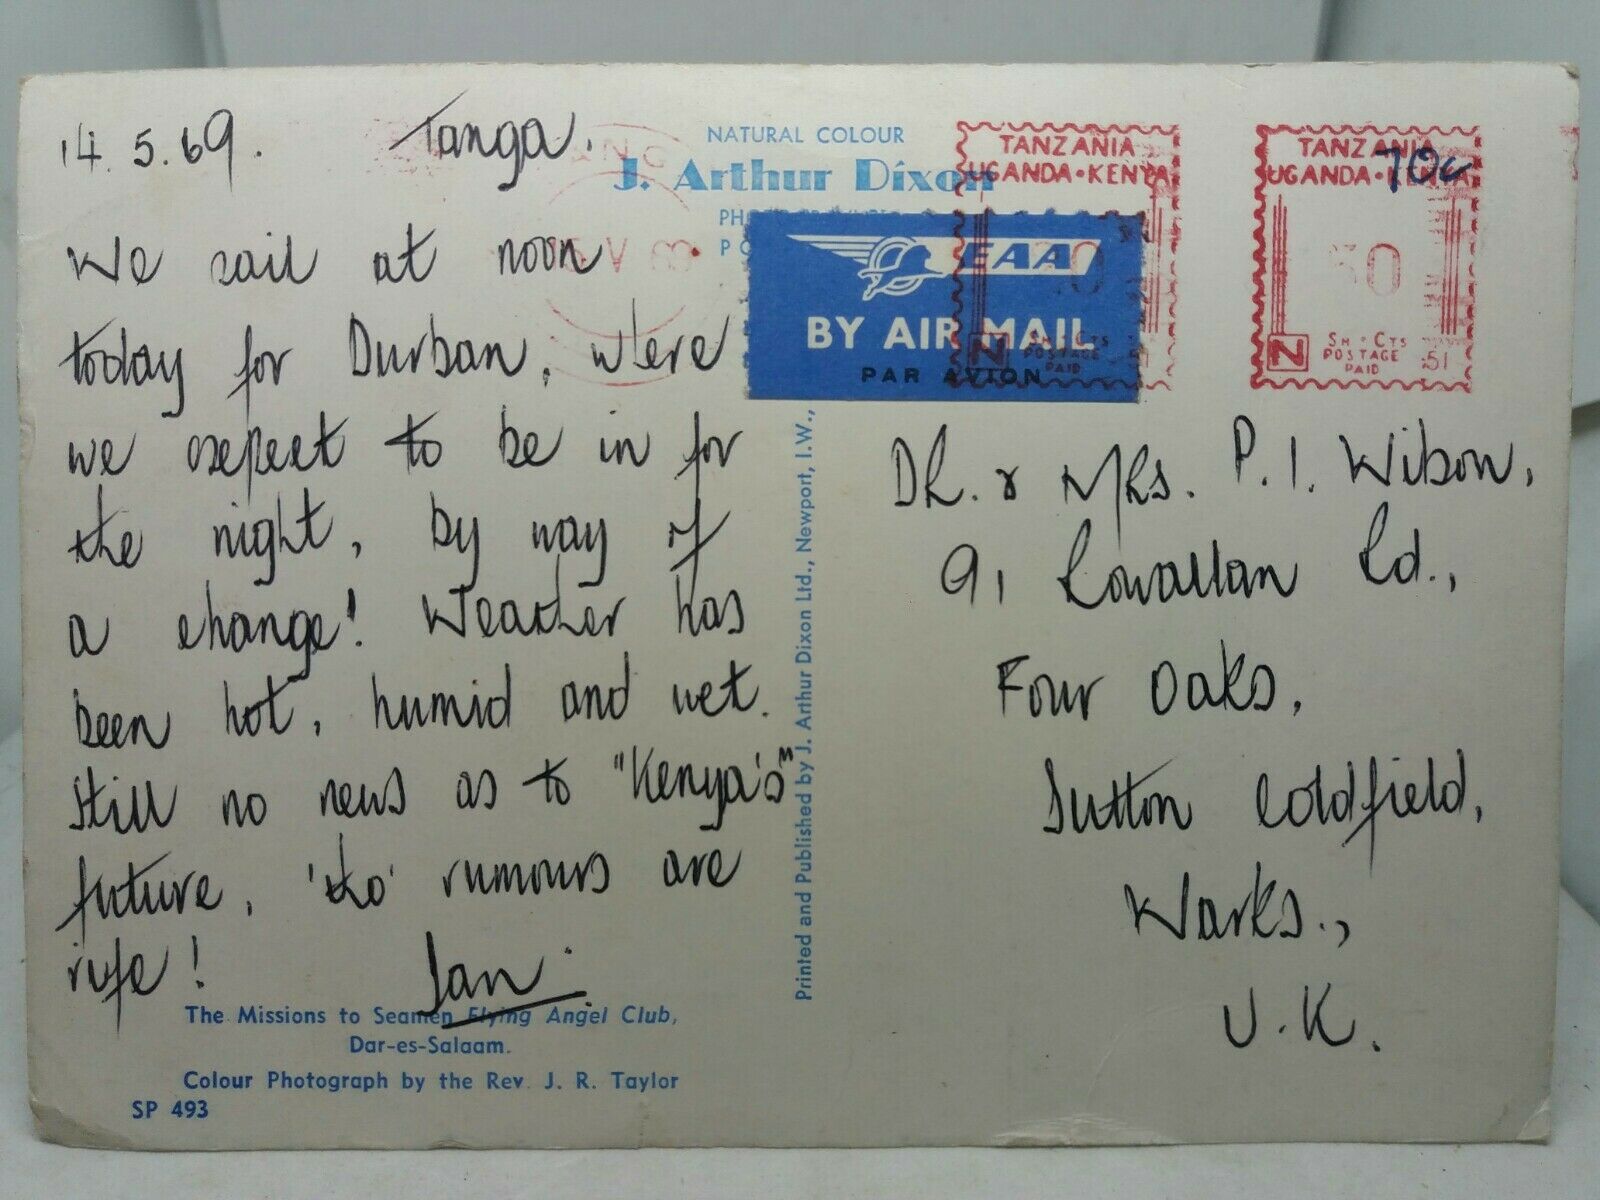 14.5.69. Tanga.
We sail at noon
today for Durban, were
we expect to be in for
the night, by way of
a change! Weather has
been hot, humid and wet.
Still no news as to "Kenya's"
future, 'tho' rumours are
rife! Ian.
The Missions to Seamen Flying Angel Club,
Dar-es-Salaam.
Colour Photograph by the Rev. J. R. Taylor
SP 493
NATURAL COLOUR
J. Arthur Dixon
Printed and Published by J. Arthur Dixon Ltd., Newport, I.W.,
EAA
BY AIR MAIL
PAR AVION
TANZANIA
UGANDA•KENYA
Sh•Cts
POSTAGE
PAID
N
TANZANIA
UGANDA•KENYA
70c
50
Sh•Cts
POSTAGE
PAID
51
N
Dr. & Mrs. P. I. Wilson,
91 Rowallan Rd.,
Four Oaks,
Sutton Coldfield,
Warks.,
U.K.